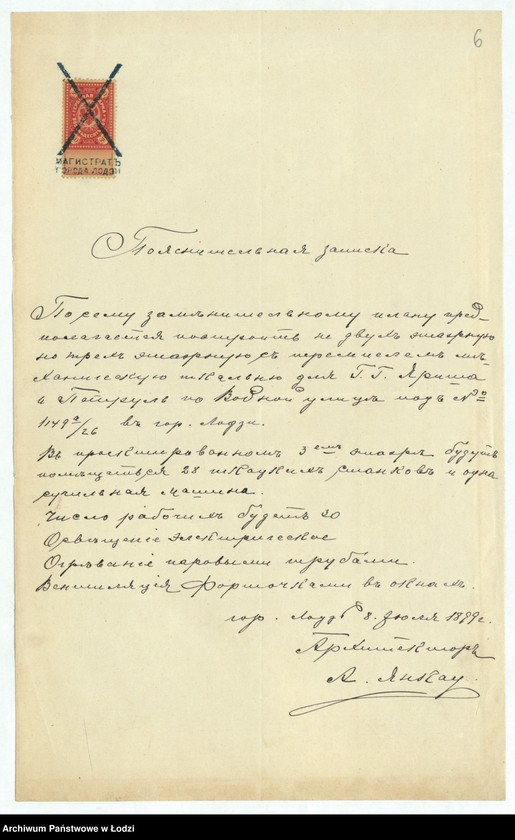 6
МАГИСТРАТЪ
ГОРОДА ЛОДЗИ
Пояснительная записка
По сему замѣнительному плану пред-
полагается построить не двухъ этажную
но трехъ этажную съ перемыслемъ ме-
ханическую ткальню для Г.Г. Яриша
и Петруль по Водной улицѣ подъ №о
1149а/26 въ гор. Лодзи.
Въ проектированномъ 3емъ этажѣ будутъ
помѣщаться 28 ткацкихъ станковъ и одна
сушильная машина.
Число рабочихъ будетъ 20
Освѣщеніе электрическое
Огрѣваніе паровыми трубами.
Вентиляція форточками въ окнахъ.
гор. Лодзь 8. Іюля 1899 г.
Архитекторъ
А. Янкау.
Archiwum Państwowe w Łodzi